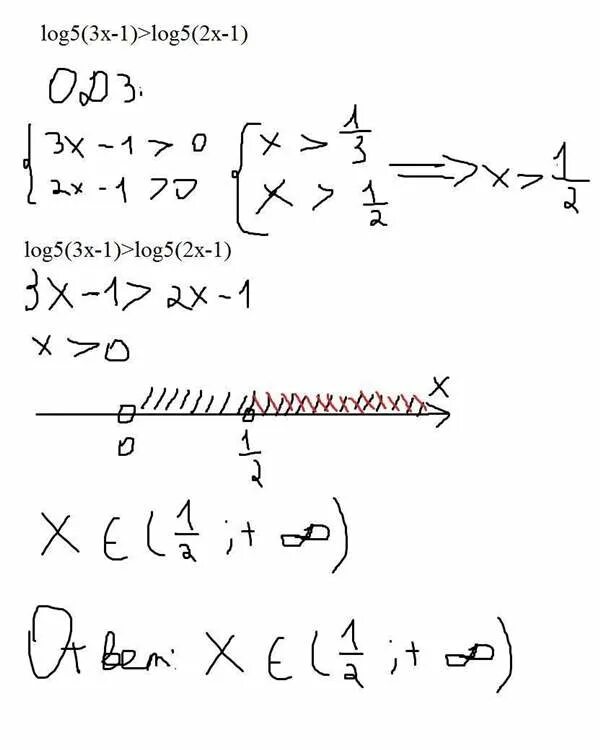 log5(3x-1)>log5(2x-1)
ОДЗ:
{ 3x - 1 > 0 { x > 1/3 ⟹ x > 1/2
{ 2x - 1 > 0 { x > 1/2
log5(3x-1)>log5(2x-1)
3x - 1 > 2x - 1
x > 0
x
0 1/2
x ∈ (1/2 ; + ∞)
Ответ: x ∈ (1/2 ; + ∞)